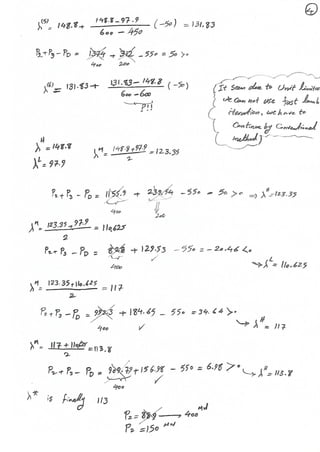 4
λ⁽⁵⁾ = 148.8 + (148.8 - 97.9)/(600 - 450) (-50) = 131.83
P₂ + P₃ - P_D = 1374 + 312 - 550 = 50 >0
400 200
= 131.83 + (131.83 - 148.8)/(600 - 600) (-50)
It seem due to Unit limites
we can not use fast lamb
iteration, we have to
Continue by Conventional
method
λᴴ = 148.8
λᴸ = 97.9
λᴹ = (148.8 + 97.9)/2 = 123.35
P₂ + P₃ - P_D = 1155.9 + 239.54 - 550 = 50 >0 ⇒ λᴴ = 123.35
400 200
λᴹ = (123.35 + 97.9)/2 = 110.625
P₂ + P₃ - P_D = + 129.53 - 550 = -20.46 <0
400
→ λᴸ = 110.625
λᴹ = (123.35 + 110.625)/2 = 117
P₂ + P₃ - P_D = + 184.65 - 550 = 34.64 >0
400 ✓
→ λᴴ = 117
λᴹ = (117 + 110.625)/2 = 113.8
P₂ + P₃ - P_D = 909.79 + 156.98 - 550 = 6.98 >0 → λᴴ = 113.8
400
λ* is finally 113
P₂ = → 400 MW
P₃ = 150 MW